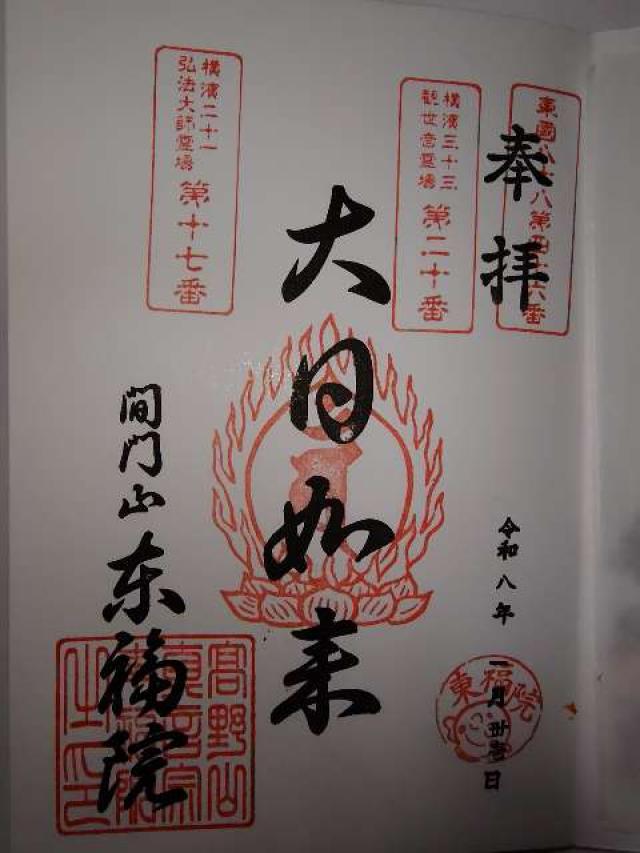 東國八十八第四十六番
奉拝
横濱三十三
観世音霊場 第二十番
横濱二十一
弘法大師霊場 第十七番
大日如来
令和八年
一月卅壱日
東福院
間門山
东福院
高野山
真言宗
東福院
之印